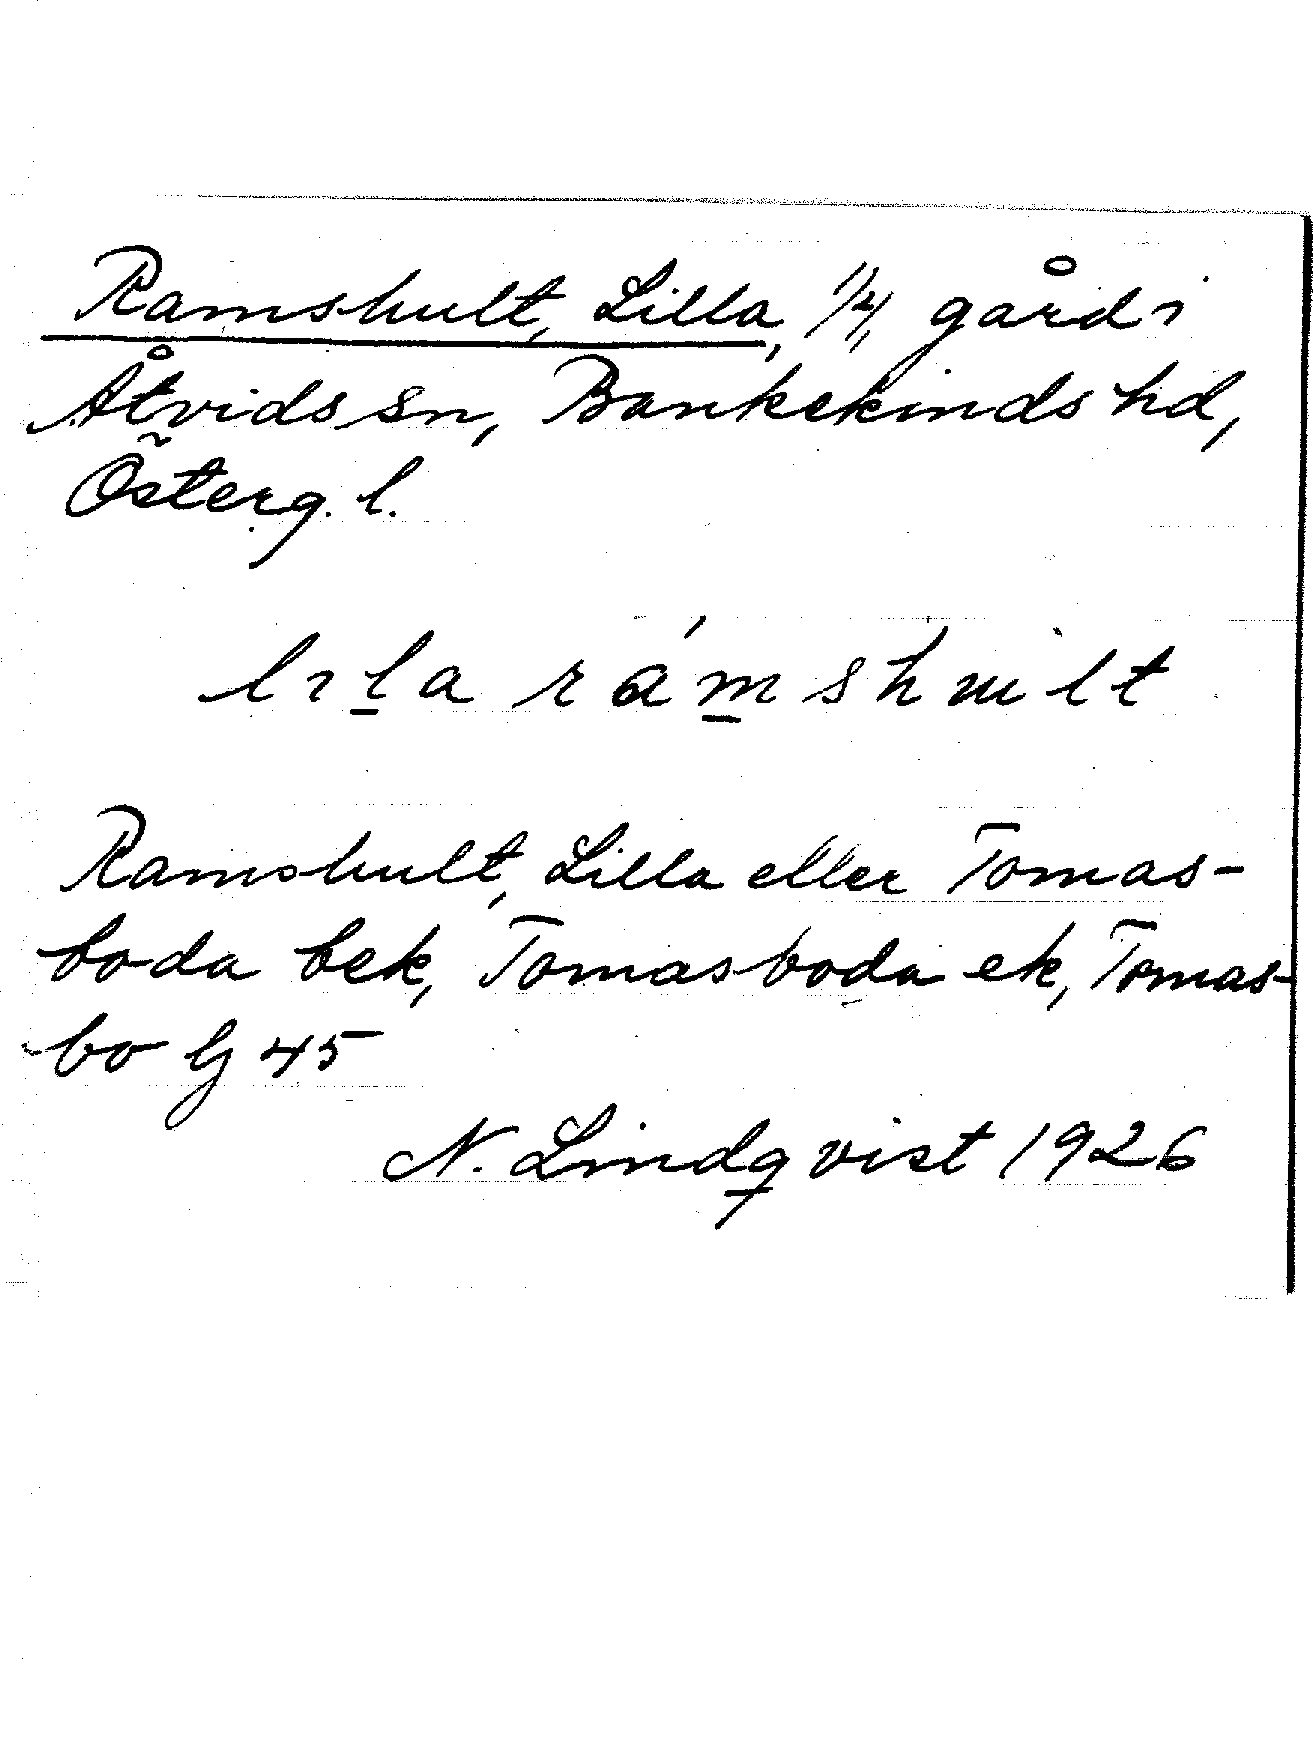 Ramshult, Lilla, 1/4, gård i
Åtvids sn, Bankekinds hd,
Österg. l.
lıla rámshult
Ramshult, Lilla eller Tomas-
boda bek, Tomasboda ek, Tomas-
bo GJ 45
N. Lindqvist 1926